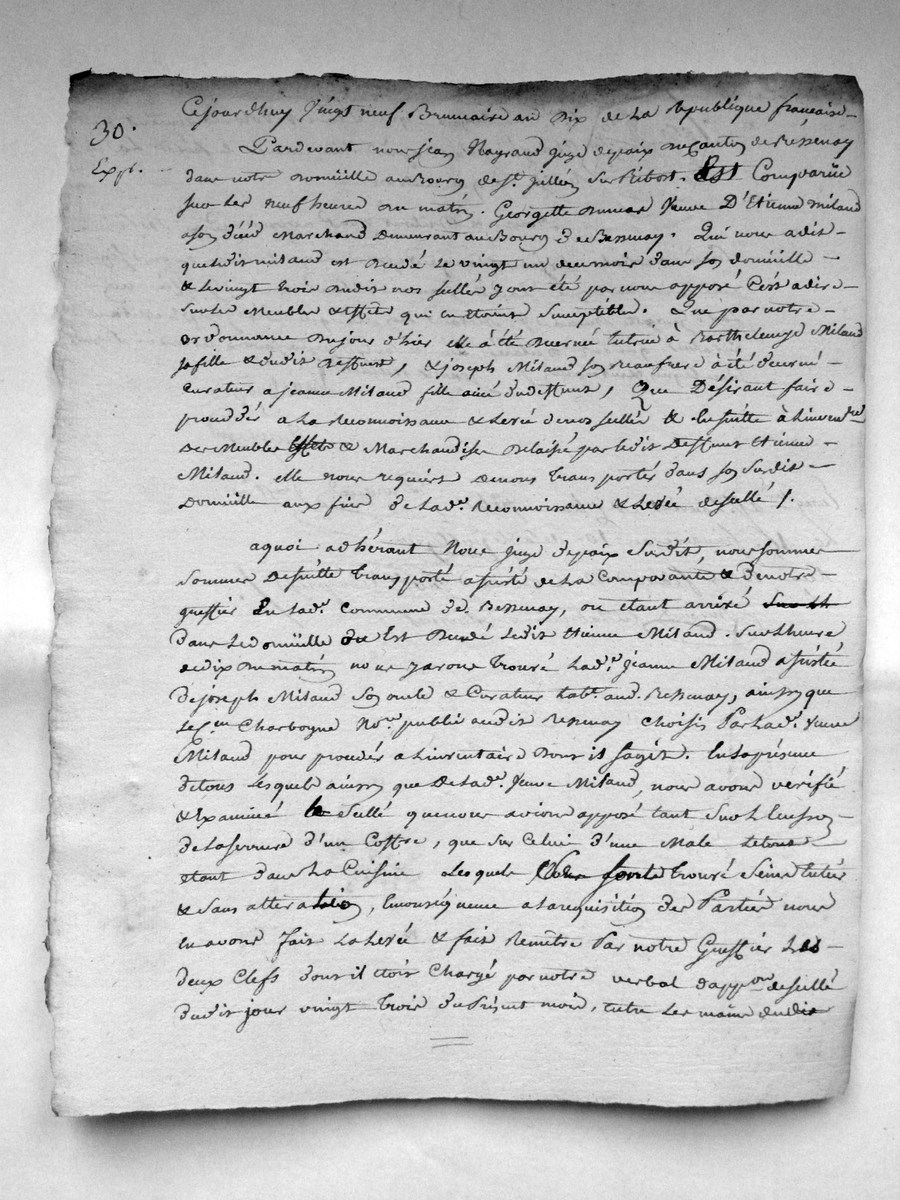 30.
Exp.
Cejourdhuy Vingt neuf Brumaire an Dix de La République francaise
Pardevant nous jean Nayrand juge depaix du Canton de Bessenay
dans notre domiciille au Bourg de St. jullien Sur Bibost. Est Comparüe
sur Les neuf heures du matin. Georgette Dumas Veuve D'Etienne Milaud
a son déced Marchand Demeurant au Bourg de Bessenay. Qui nous a dit
que ledit milaud est décédé Le vingt un du ce mois dans son domiciille
& Le vingt trois dudit nos scellés y ont été par nous apposé C'est adire
Sur Les Meubles & Effets qui en étoient Susceptible. Que par notre
ordonnance du jour d'hier elle à été décernée tutrice à Barthelemye Milaud
sa fille & dudit deffunt, & joseph Milaud son beaufrere à été décerné
Curateur a jeanne Milaud fille ainé dudeffunt, Que Désirant faire
procéder a La Reconnoissance & Levée denos scellés & Ensuitte à Linventre
des Meubles & Marchandises Délaissé par ledit Deffunt Etienne
Milaud. elle nous requiert denous transporter dans son Susdit
Domiciille aux fins de Ladte. Reconnoissance & Levée descellé /.
aquoi adhérant Nous juge depaix Susdit, nous sommes
Sommes desuitte transporté assisté de La Comparante & denotre
greffier En Ladte. Commune de Bessenay, ou etant arrivé
dans Ledomiciille ou Est Décédé Ledit Etienne Milaud. Sur Lheure
de dix du matin nous y avons trouvé Ladte. jeanne Milaud assistée
de joseph Milaud Son oncle & Curateur habt. aud. Bessenay, ainsy que
Le Cen Charbogne Nore. publié audit Bessenay Choisis Par Ladte. Veuve
Milaud pour procéder a Linventaire Dont il sagit. En la présence
de tous Lesquels ainsy que de Ladte. Veuve Milaud, nous avons vérifié
& Examiné le Scellé que nous avions apposé tant Sur L'Ecusson
de La serrure d'un Coffre, que sur Celui d'une Male Letout
etant dans La Cuisine Lesquels trouvé Seins Entiés
& Sans alteration, En conséquence a la requisition des Parties nous
En avons fait La Levée & fait remettre Par notre Greffier Les
deux Clefs dont il étoit Chargé par notre verbal d'appon de scellé
dudit jour vingt trois du Présent mois, entre Les mains dudit